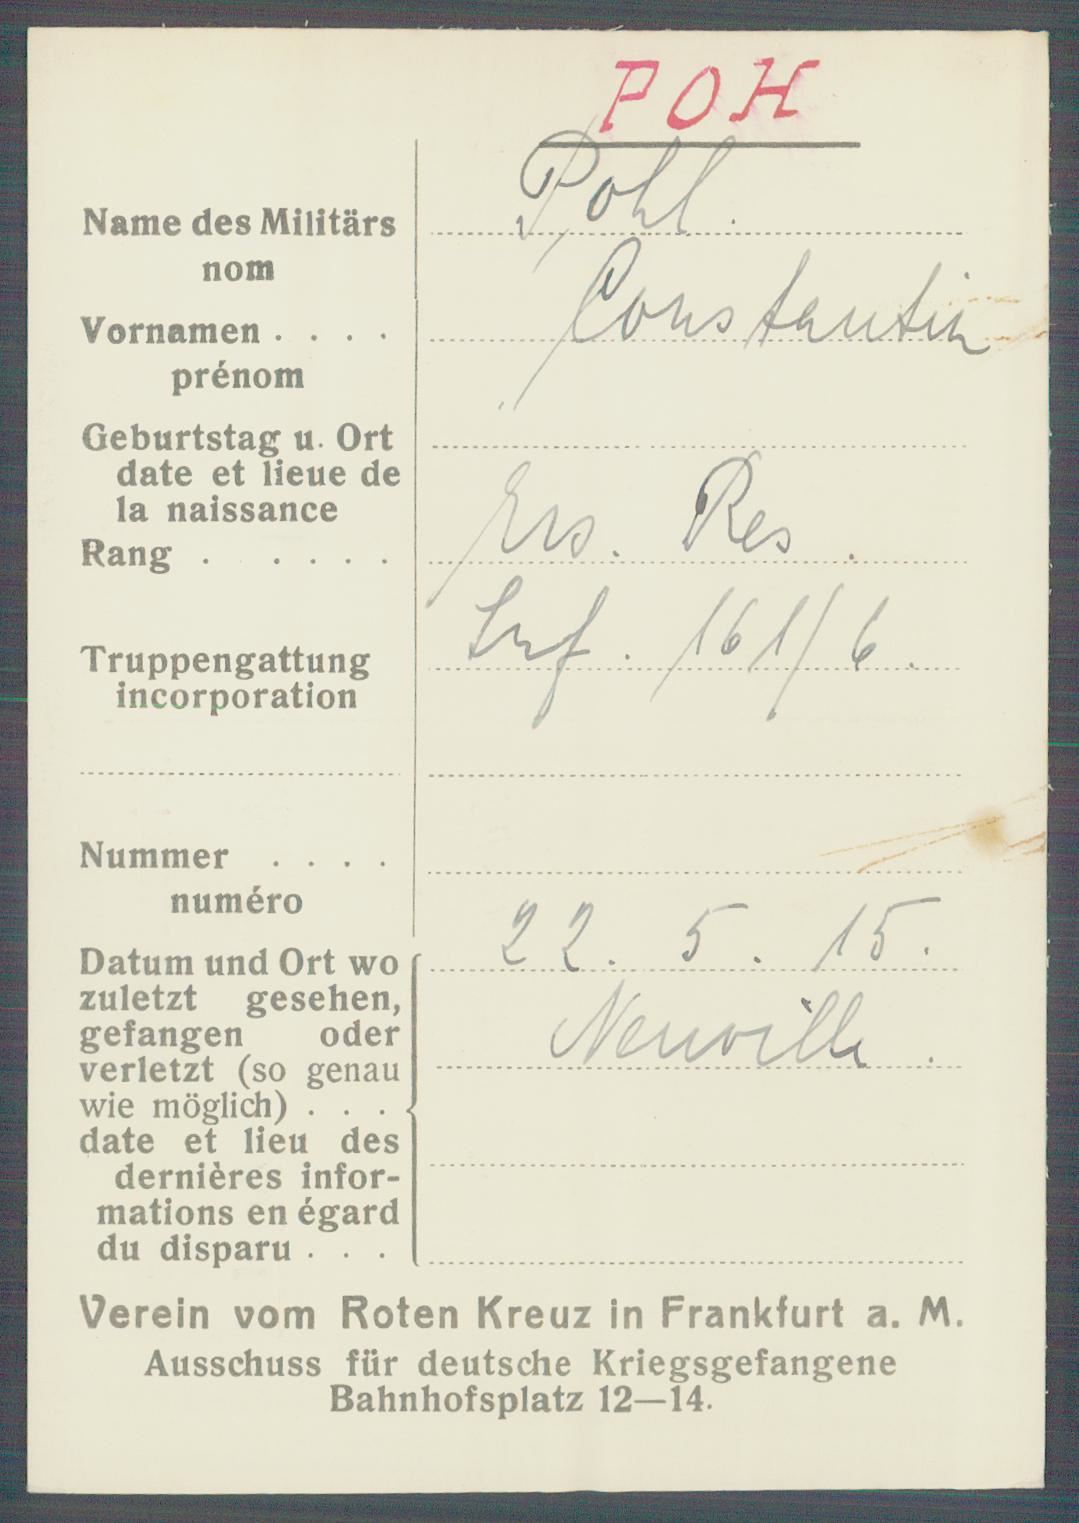 POH
Name des Militärs Pohl.
nom
Vornamen . . . . Constantin
prénom
Geburtstag u. Ort
date et lieue de
la naissance
Rang . . . . . Ers. Res.
Truppengattung Inf. 161/6.
incorporation
Nummer . . . .
numéro
Datum und Ort wo 22. 5. 15.
zuletzt gesehen,
gefangen oder Neuville.
verletzt (so genau
wie möglich) . . .
date et lieu des
dernières infor-
mations en égard
du disparu . . .
Verein vom Roten Kreuz in Frankfurt a. M.
Ausschuss für deutsche Kriegsgefangene
Bahnhofsplatz 12—14.